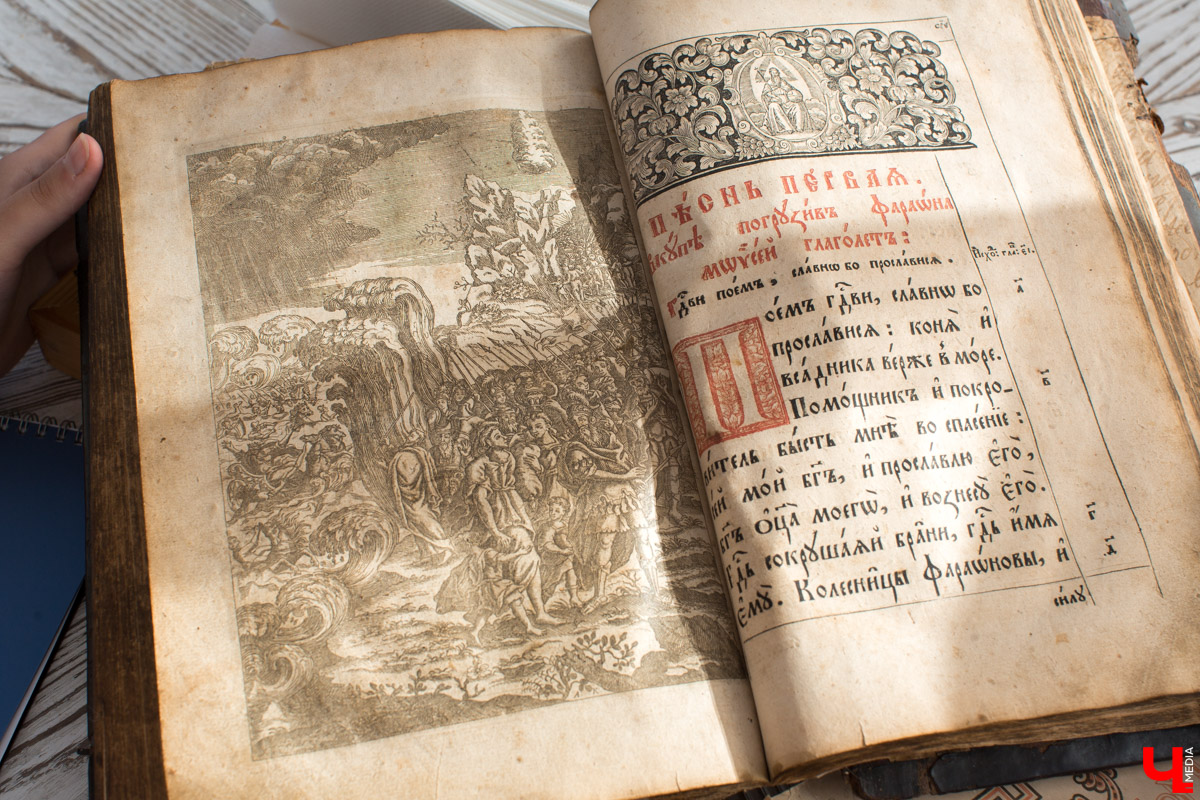 сᲂ҃
ПѢ́СНЬ ПЕ́РВАѦ.
вкꙋ́пѣ погрꙋзи́въ фараѡ́на
мѡѷсе́й глаго́летъ:
Гд҇ви пое́мъ, сла́внѡ бо просла́висѧ.
По́емъ гд҇ви, сла́внѡ бо
просла́висѧ: конѧ̀ и҆
вса́дника ве́рже в̾ мо́ре.
Помо́щникъ и҆ покро-
ви́тель бы́сть мнѣ̀ во спасе́нїе:
се́й мо́й бг҃ъ, и҆ просла́влю є҆го̀,
бг҃ъ ѻ҆ц҃а̀ моегѡ̀, и҆ вознесꙋ̀ є҆го̀.
Гд҇ь сокрꙋша́ѧй бра̑ни, гд҇ь и҆́мѧ
є҆мꙋ̀. Колесни̑цы фараѡ́новы, и҆
си́лꙋ
а҃
в҃
г҃
д҃
Ч MEDIA